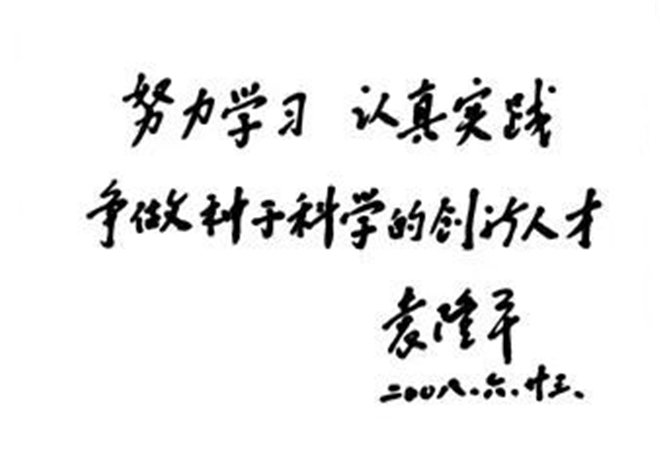 努力学习 认真实践
争做种子科学的创新人才
袁隆平
二〇〇八.六.廿三.